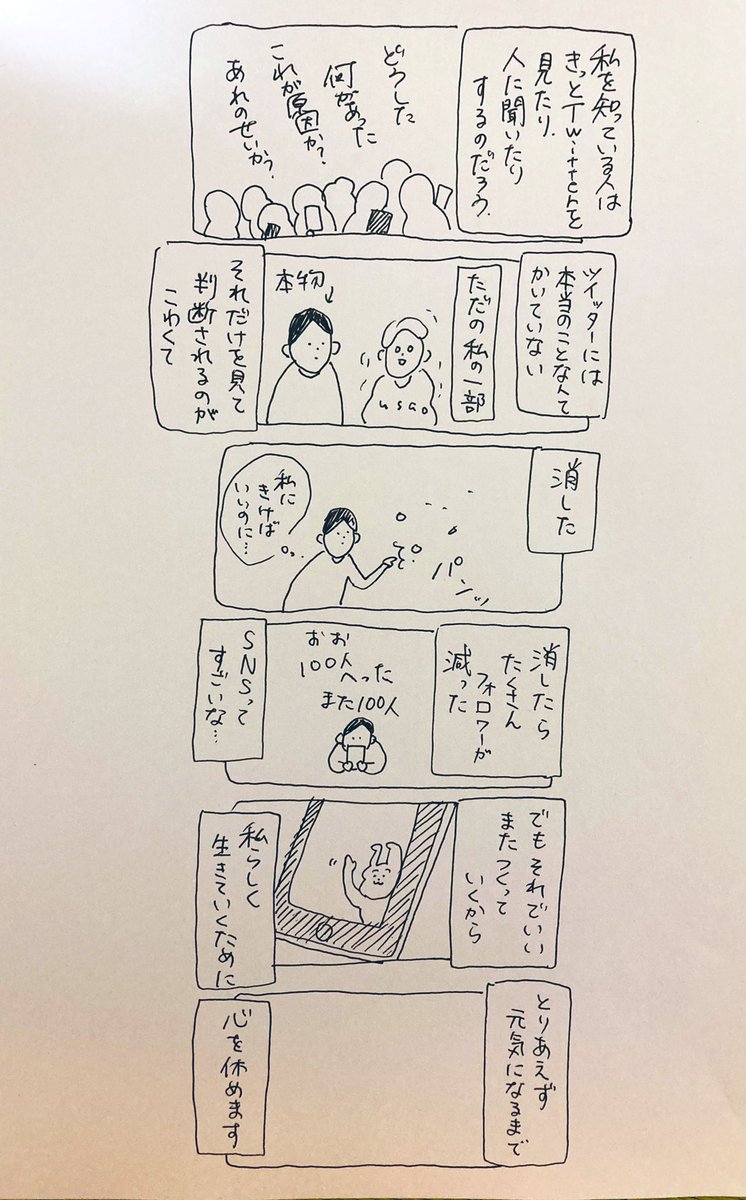 私を知っている人は
きっとTwitterを
見たり、
人に聞いたり
するのだろう。
どうした
何があった
これが原因か?
あれのせいか?
ツイッターには
本当のことなんて
かいていない
ただの私の一部
usao
本物
それだけを見て
判断されるのが
こわくて
消した
パンッ
私に
きけば
いいのに…
消したら
たくさん
フォロワーが
減った
おお
100人
へった
また100人
SNSって
すごいな…
でもそれでいい
またつくって
いくから
私らしく
生きていくために
とりあえず
元気になるまで
心を休めます